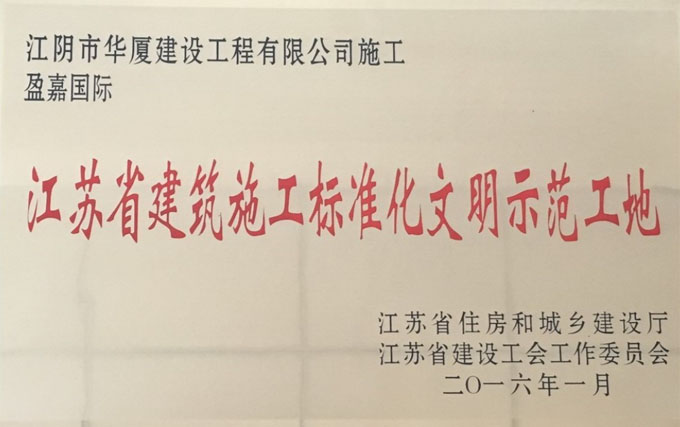 江阴市华厦建设工程有限公司施工
盈嘉国际
江苏省建筑施工标准化文明示范工地
江苏省住房和城乡建设厅
江苏省建设工会工作委员会
二〇一六年一月